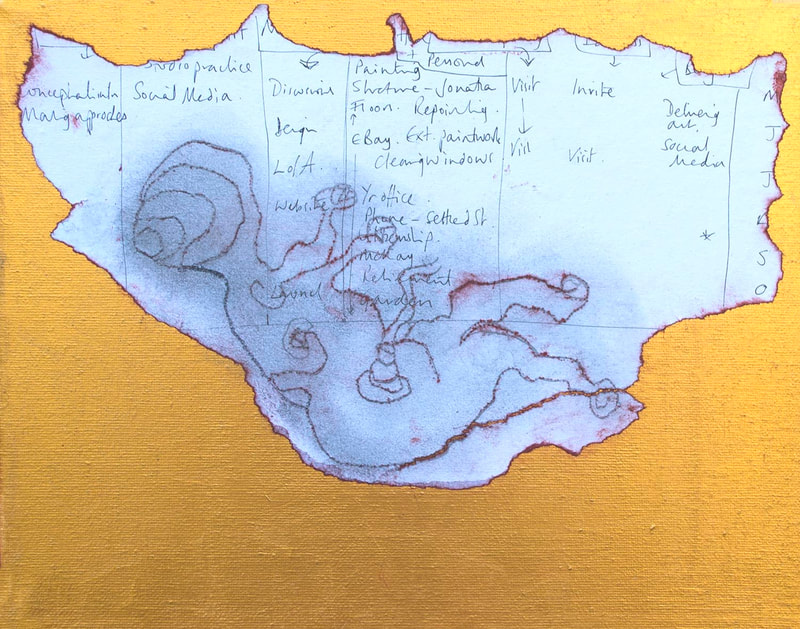 Personal
Studio practice
Social Media
Discussions
Design
L of A
Website
Launch
Painting
Structure - Jonathan
Floor. Repointing.
EBay. Ext. paintwork
Cleaning windows
Yr office
Phone - Settled St
Citizenship.
McKay
Retirement
Garden
Visit
Visit
Invite
Visit.
Delivering
art.
Social
Media
*
M
J
J
A
S
O